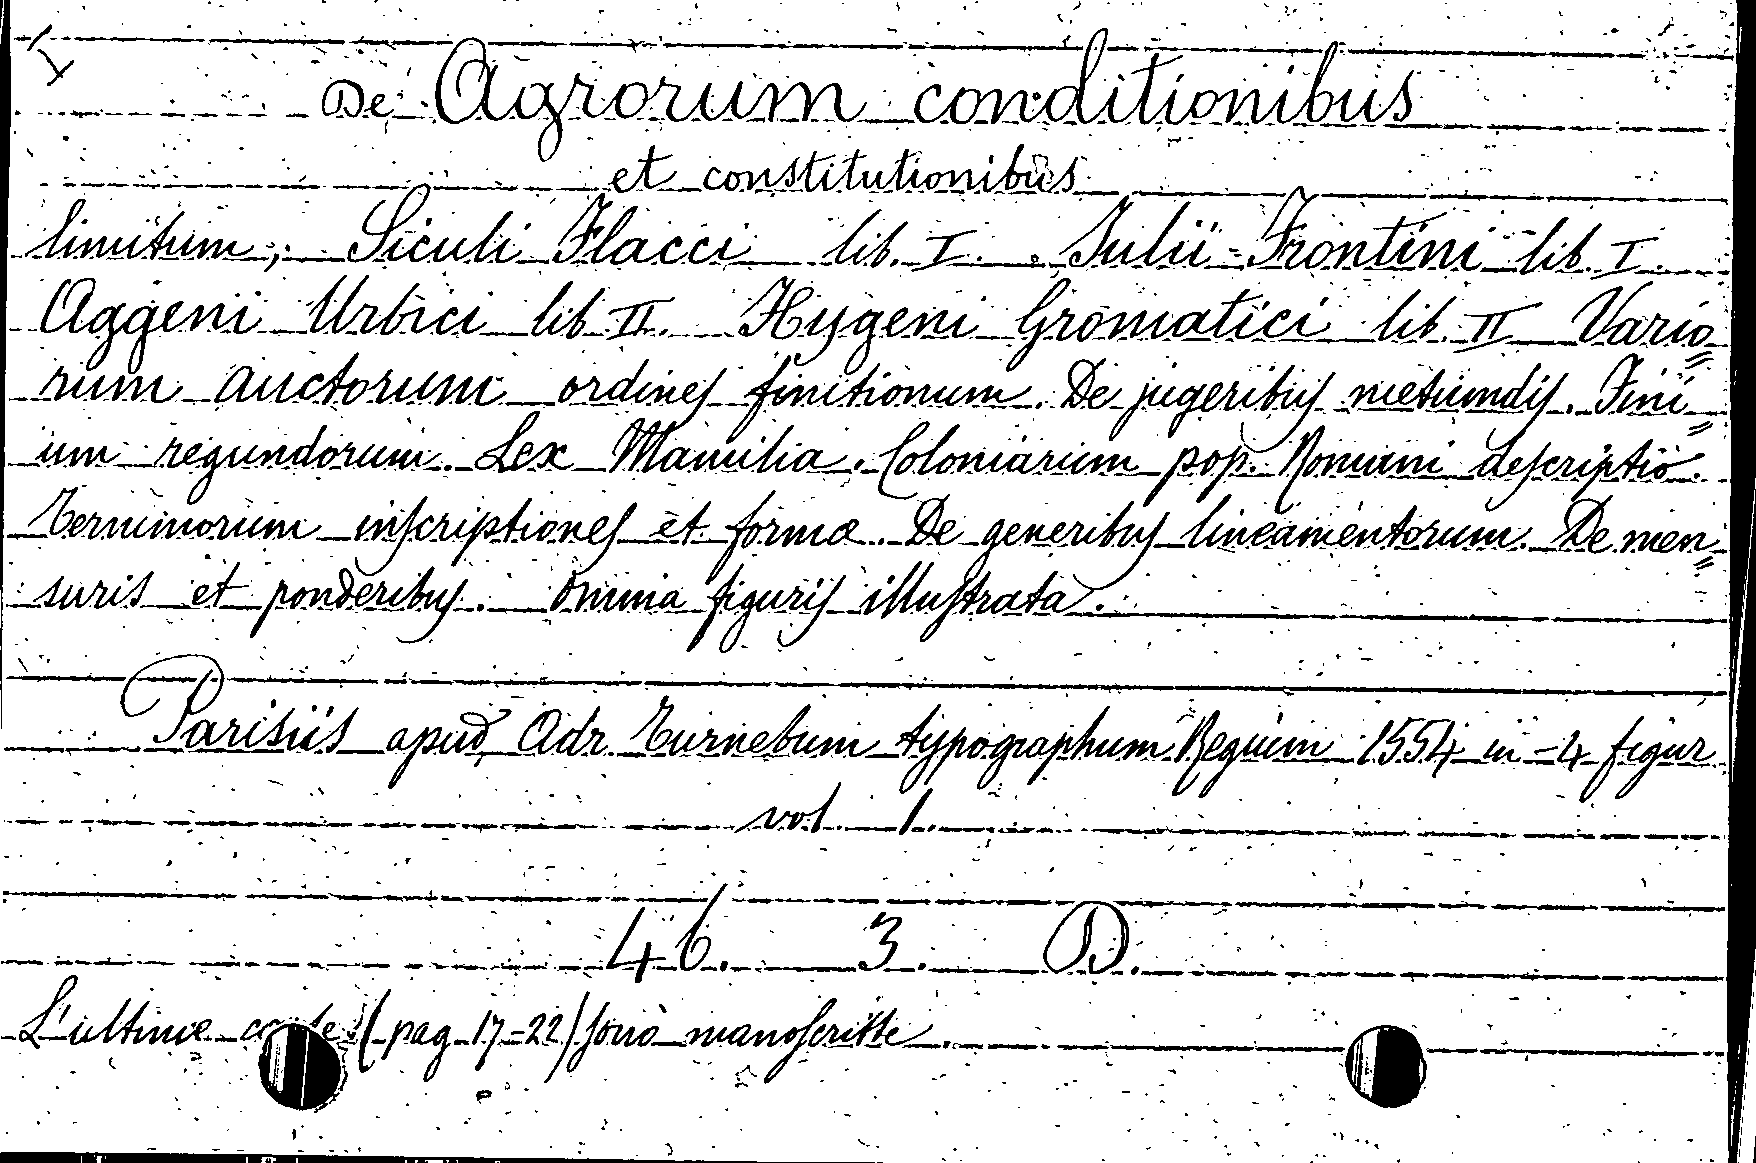 De Agrorum conditionibus
et constitutionibus
limitum; Siculi Flacci lib. I. Julii Frontini lib. I.
Aggeni Urbici lib II. Hygeni Gromatici lib. II Vario=
rum auctorum ordines finitionum. De jugeribus metiundis. Fini=
um regundorum. Lex Mamilia. Coloniarum pop. Romani descriptio.
Terminorum inscriptiones et formæ. De generibus lineamentorum. De men=
suris et ponderibus. Omnia figuris illustrata.
Parisiis apud Adr. Turnebum typographum Regium 1554 in-4 figur
vol. 1.
46. 3. D.
L'ultime carte (pag 17=22) sono manoscritte.